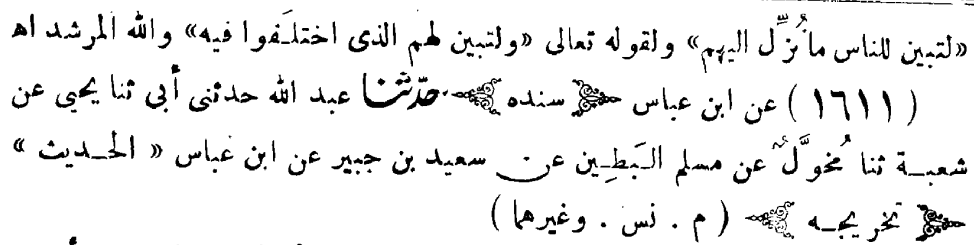 «لتبين للناس ما نُزِّل اليهم» ولقوله تعالى «ولتبين لهم الذى اختلفوا فيه» والله المرشد اهـ
( ١٦١١ ) عن ابن عباس سنده حدّثنا عبد الله حدثنى أبى ثنا يحيى عن
شعبـة ثنا مُخَوَّل عن مسلم البَطِين عن سعيد بن جبير عن ابن عباس « الحديث »
تخريجه ( م . نس . وغيرهما )